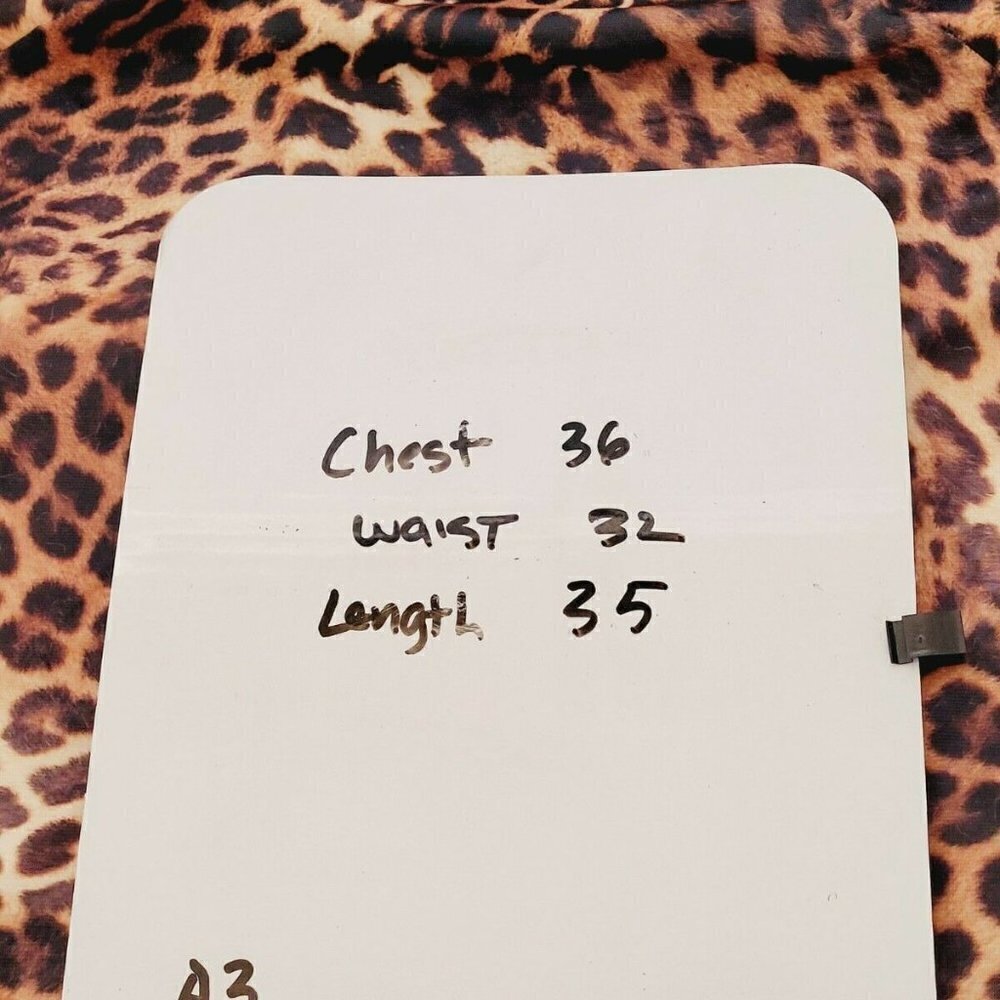 Chest 36
Waist 32
Length 35
A3